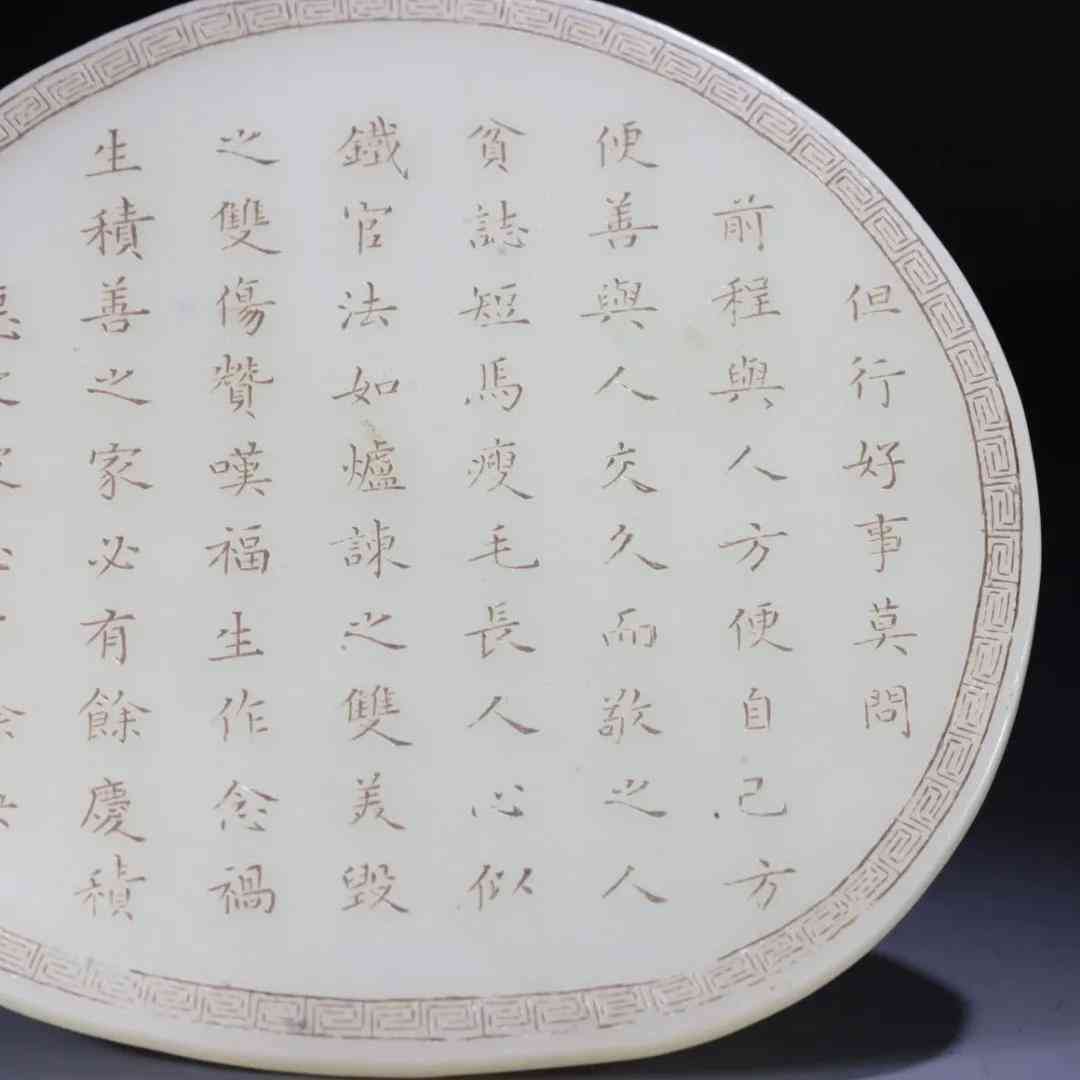 但行好事莫問
前程與人方便自己方
便善與人交久而敬之人
貧誌短馬瘦毛長人心似
鐵官法如爐諫之雙美毀
之雙傷贊嘆福生作念禍
生積善之家必有餘慶積